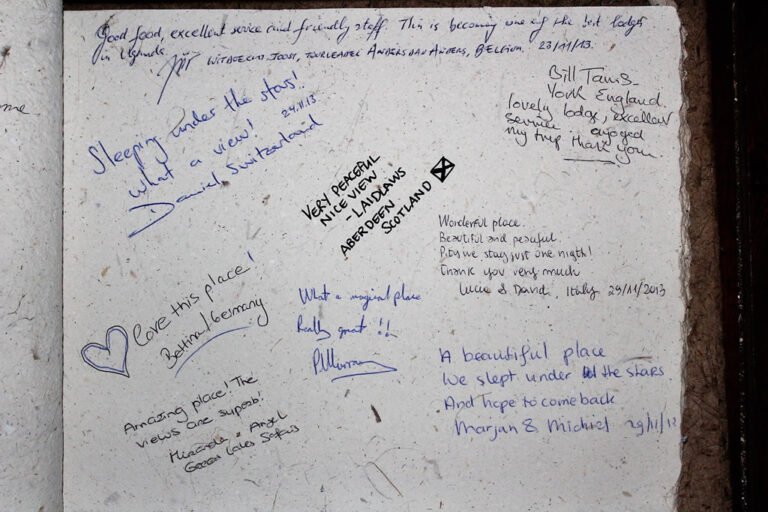 ome
Good food, excellent service and friendly staff. This is becoming one of the best lodges
in Uganda.
JOOST, TOURLEADER ANDERS DAN ANDERS, BELGIUM. 23/11/13.
Sleeping under the stars!
What a view! 24.11.13
Daniel Switzerland
Bill Tams
York England.
lovely lodge, excellent
service enjoyed
my trip thank you
VERY PEACEFUL
NICE VIEW
- LAIDLAWS
ABERDEEN
SCOTLAND
Wonderful place.
Beautiful and peaceful.
Pity we stay just one nigth!
Thank you very much
& David, Italy 29/11/2013
Love this place!
Bettina/Germany
What a magical place
Really great !!
PMurray
Amazing place! The
views are superb!
Miranda & Angel
Green Lakes Safaris
A beautiful place
We slept under the stars
And hope to come back
Marjan & Michiel 29/11/13